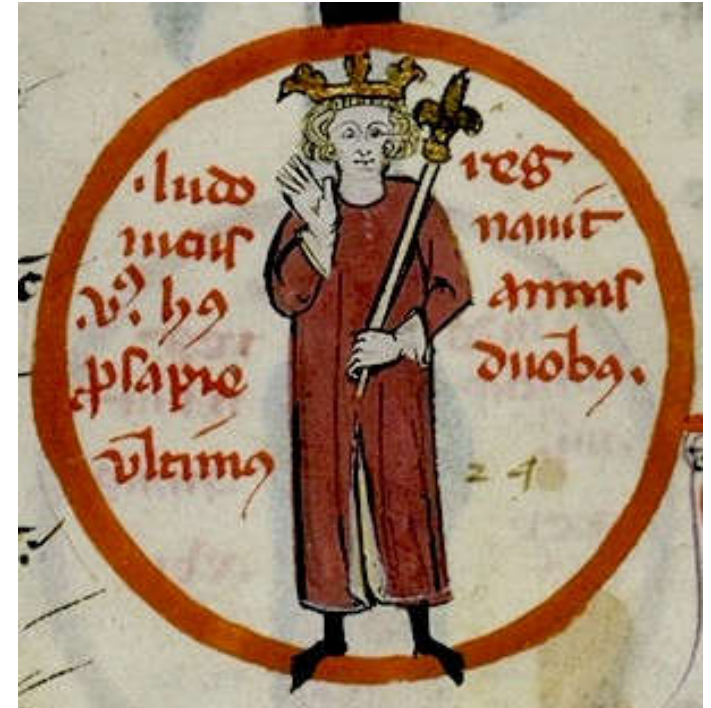 ·ludo
uicus
·vͦ· hꝰ
ꝓsapie
vltimꝰ
reg
nauit
annis
duobꝰ.
24